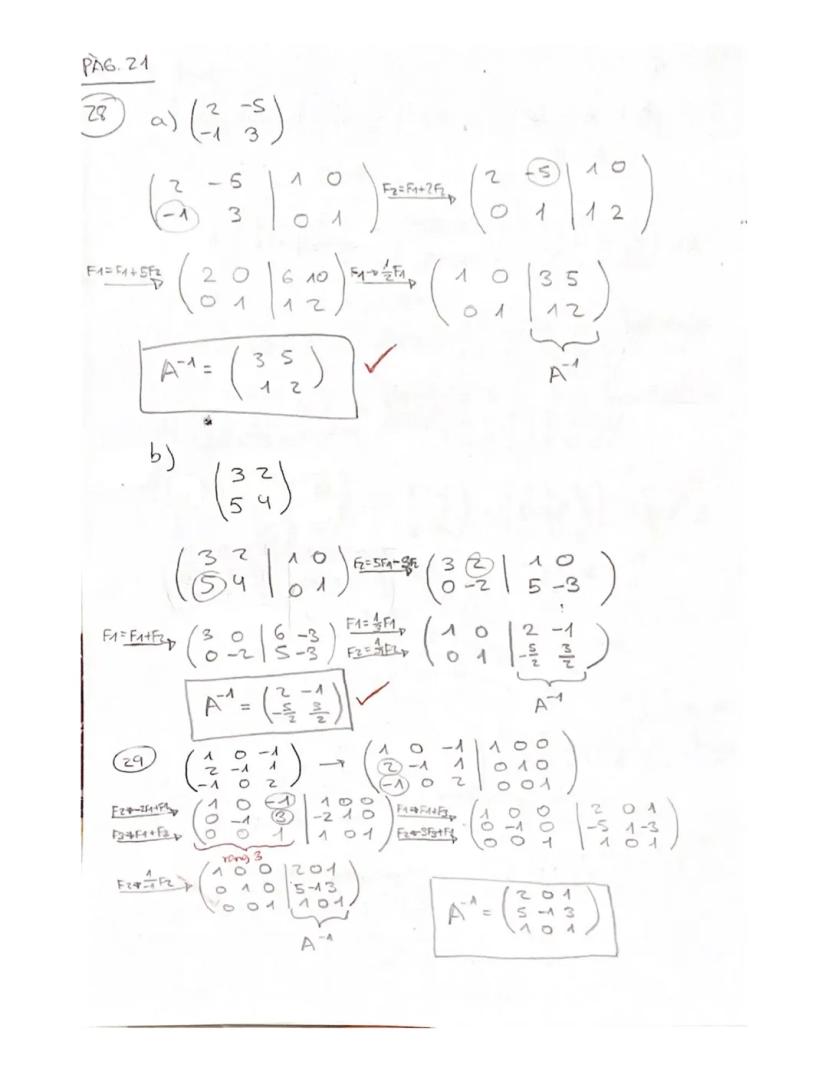 PÀG. 21
28 a) (2 -5
-1 3)
(2 -5 | 1 0
-1 3 | 0 1) F2=F1+2F2 (2 -5 | 1 0
0 1 | 1 2)
F1=F1+5F2 (2 0 | 6 10
0 1 | 1 2) F1→1/2F1 (1 0 | 3 5
0 1 | 1 2)
A⁻¹
A⁻¹ = (3 5
1 2) ✓
b)
(3 2
5 4)
(3 2 | 1 0
5 4 | 0 1) F2=5F1-3F2 (3 2 | 1 0
0 -2 | 5 -3)
F1=F1+F2 (3 0 | 6 -3
0 -2 | 5 -3) F1=1/3F1 (1 0 | 2 -1
0 1 | -5/2 3/2)
A⁻¹
A⁻¹ = (2 -1
-5/2 3/2) ✓
29 (1 0 -1
2 -1 1
-1 0 2) → (1 0 -1 | 1 0 0
2 -1 1 | 0 1 0
-1 0 2 | 0 0 1)
F2→-2F1+F2
F3→F1+F3
(1 0 -1 | 1 0 0
0 -1 3 | -2 1 0
0 0 1 | 1 0 1)
rang 3
F1→F1+F3
(1 0 0 | 2 0 1
0 -1 0 | -5 1 -3
0 0 1 | 1 0 1)
F2→1/-1F2 (1 0 0 | 2 0 1
0 1 0 | 5 -1 3
0 0 1 | 1 0 1)
A⁻¹
A⁻¹ = (2 0 1
5 -1 3
1 0 1)